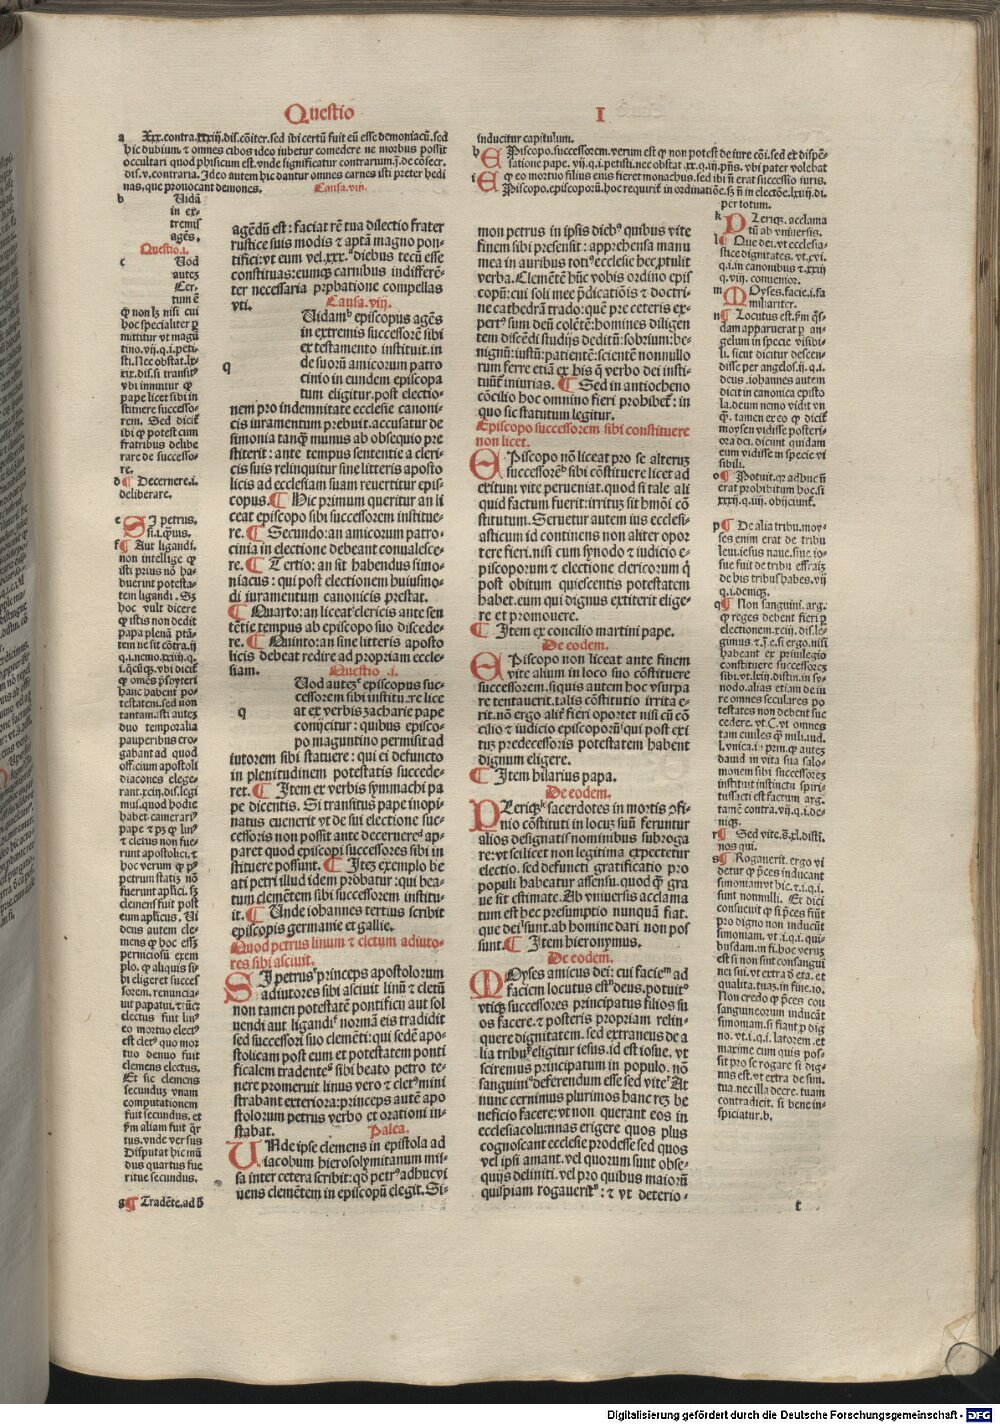 Questio
I
a Xxx.contra.xxxiij.dis.cõiter.sed ibi certũ fuit eũ esse demoniacũ.sed
hic dubium.⁊ omnes cibos ideo iubetur comedere ne morbus possit
occultari quod phisicum est.vnde significatur contrarium.j.de cõsecr.
dis.v.contraria.Ideo autem hic dantur omnes carnes isti preter hedi
nas.que prouocant demones. Causa.viij.
b Uidã
in ex-
tremis
agẽs.
Questio.i.
c Uod
autez
Cer-
tum ẽ
ꝙ non lz nisi cui
hoc specialiter ꝑ
mittitur vt magũ
tino.vij.q.i.peti-
sti.Nec obstat.lx-
xix.dis.si transitꝰ
vbi innuitur ꝙ
pape licet sibi in
stituere successo-
rem. Sed dicit̃
ibi ꝙ potest cum
fratribus delibe
rare de successo-
re.
d ¶ Decernere.i.
deliberare.
e SI petrus.
f ¶ Aut ligandi.
non intellige ꝙ
isti prius nõ ha-
buerint potesta-
tem ligandi. Sz
hoc vult dicere
ꝙ istis non dedit
papa plenã ptã-
tem
ꝙ omẽs
hanc habent po-
testatem.sed non
tantam.isti autez
duo temporalia
pauperibus ero-
gabant ad quod
officium apostoli
diacones elege-
rant.xciij.dis.legi
mus.quod hodie
habet camerariꝰ
pape
⁊ cletus non fue-
runt apostolici.⁊
hoc verum
petrum
fuerunt aplici.sz
clemens fuit post
eum aplicus. Ui
dens autem cle-
mens ꝙ hoc essz
perniciosũ exem
plo.ꝙ aliquis si-
bi eligeret succes
sorem.renuncia-
uit papatui.⁊ tũc
electus fuit linꝰ
eo mortuo electꝰ
est cletꝰ quo mor
tuo denuo fuit
clemens electus.
Et sic clemens
secundum vnam
computationem
fuit secundus.et
fm aliam fuit q̃r
tus.vnde versus
Disputat hic mũ
dus quartus fue
ritue secundus.
g ¶ Tradẽte.ad
agẽdũ est:faciat rẽ tua dilectio frater
rustice suis modis ⁊ aptã magno pon-
tifici:vt eum vel.xxx.ᵃdiebus tecũ esse
constituas:eumqꝫ carnibus indifferẽ-
ter necessaria prohibatione compellas
vti. Causa.viij.
q Uidamᵇ episcopus agẽs
in extremis successorẽ sibi
ex testamento instituit.in
de suorũ amicorum patro
cinio in eundem episcopa
tum eligitur.post electio-
nem pro indemnitate ecclesie canoni-
cis iuramentum prebuit.accusatur de
simonia tanqꝫ munus ab obsequio pre
stiterit:ante tempus sententie a cleri-
cis suis relinquitur sine litteris aposto
licis ad ecclesiam suam reuertitur epis-
copus. ¶ Hic primum queritur an li
ceat episcopo sibi successorem institue-
re. ¶ Secundo:an amicorum patro-
cinia in electione debeant conualesce-
re. ¶ Tertio:an sit habendus simo-
niacus:qui post electionem huiusmo-
di iuramentum canonicis prestat.
¶ Quarto:an liceat clericis ante sen
tẽtie tempus ab episcopo suo discede-
re. ¶ Quinto:an sine litteris aposto
licis debeat redire ad propriam eccle-
siam. Questio .i.
q Uod autezᶜ episcopus suc-
cessorem sibi institu:re lice
at ex verbis zacharie pape
conijcitur:quibus episco-
po maguntino permisit ad
iutorem sibi statuere:qui ei defuncto
in plenitudinem potestatis succede-
ret. ¶ Item ex verbis symmachi pa
pe dicentis. Si transitus pape inopi-
natus euenerit vt de sui electione suc-
cessoris non possit ante decernereᵈ ap-
paret quod episcopi successores sibi in
stituere possunt. ¶ Itez exemplo be
ati petri illud idem probatur:qui bea-
tum clemẽtem sibi successorem institu-
it. ¶ Unde iohannes tertius scribit
episcopis germanie et gallie.
Quod petrus linum ⁊ cletum adiuto-
res sibi asciuit.
SI petrusᵉ princeps apostolorum
adiutores sibi asciuit linũ ⁊ cletũ
non tamen potestatẽ pontificij aut sol
uendi aut ligandiᶠ normã eis tradidit
sed successori suo clemẽti:qui sedẽ apo-
stolicam post eum et potestatem ponti
ficalem tradenteᵍ sibi beato petro te-
nere promeruit linus vero ⁊ cletꝰ mini
strabant exteriora:princeps autẽ apo
stolorum petrus verbo et orationi in-
stabat. Palea.
UNde ipse clemens in epistola ad
iacobum hierosolymitanum mis-
sa inter cetera scribit:qõ petrꝰ adhuc vi
uens clemẽtem in episcopũ elegit.Si-
inducitur capitulum.
h EPiscopo.successorem.verum est ꝙ non potest de iure cõi.sed ex dispẽ-
satione pape.vij.q.i.petisti.nec obstat.xx.q.iij.pñs.vbi pater volebat
i ꝙ eo mortuo filius eius fieret monachus.sed ibi nõ erat successio iuris.
EPiscopo.episcoporũ.hoc requirit̃ in ordinatiõe.sz nõ in electõe.lxiiij.di.
per totum.
mon petrus in ipsis diebꝰ quibus vite
finem sibi presensit:apprehensa manu
mea in auribus totiꝰ ecclesie hec ꝓtulit
verba.Clemẽtẽ hũc vobis ordino epis
copũ:cui soli mee ꝓdicatiõis ⁊ doctri-
ne cathedrã trado:quẽ pre ceteris ex-
pertꝰ sum deũ colẽtẽ:homines diligen
tem discẽdi studijs deditũ:sobrium:be-
nignũ:iustũ:patientẽ:scientẽ nonnullo
rum ferre etiã ex his q̃ verbo dei insti-
tuũt̃ iniurias. ¶ Sed in antiocheno
cõcilio hoc omnino fieri prohibet̃:in
quo sic statutum legitur.
Episcopo successorem sibi constituere
non licet.
EPiscopo nõ liceat pro se alteruz
successorẽʰ sibi cõstituere licet ad
exitum vite perueniat.quod si tale ali
quid factum fuerit:irrituz sit hmõi cõ
stitutum.Seruetur autem ius ecclesi-
asticum id continens non aliter opor
tere fieri.nisi cum synodo ⁊ iudicio e-
piscoporum ⁊ electione clericorum q̃
post obitum quiescentis potestatem
habet.eum qui dignus extiterit elige-
re et promouere.
¶ Item ex concilio martini pape.
De eodem.
EPiscopo non liceat ante finem
vite alium in loco suo cõstituere
successorem.siquis autem hoc vsurpa
re tentauerit.talis cõstitutio irrita e-
rit.nõ ergo alit̃ fieri oportet nisi cũ cõ
cilio ⁊ iudicio episcoporũⁱ qui post exi
tuz predecessoris potestatem habent
dignum eligere.
¶ Item hilarius papa.
De eodem.
PLeriqꝫᵏ sacerdotes in mortis ꝯfi-
nio cõstituti in locuz suũ feruntur
alios designatis nominibus subroga
re:vt scilicet non legitima expectetur
electio.sed defuncti gratificatio pro
populi habeatur assensu.quod qꝫ gra
ue sit estimate.Ab vniuersis acclama
tum est hec presumptio nunquã fiat.
que deiˡ sunt.ab homine dari non pos
sunt. ¶ Item hieronymus.
De eodem.
MOyses amicus dei:cui faciemᵐ ad
faciem locutus estⁿ deus.potuitᵒ
vtiqꝫ successores principatus filios su
os facere.⁊ posteris propriam relin-
quere dignitatem.sed extraneus de a
lia tribuᵖ eligitur iesus.id est iosue.vt
sciremus principatum in populo.nõ
sanguiniᑫ deferendum esse sed viteʳ At
nunc cernimus plurimos hanc rez be
neficio facere:vt non querant eos in
ecclesia columnas erigere quos plus
cognoscant ecclesie prodesse sed quos
vel ipsi amant.vel quorum sunt obse-
quijs deliniti.vel pro quibus maiorũ
quispiam rogaueritˢ:⁊ vt deterio-
k PLeriqꝫ. acclama
tũ ab vniuersis.
l ¶ Que dei.vt ecclesia-
stice dignitates. vt.xvi.
q.i.in canonibus ⁊.xxij
q.viij. conuenior.
m MOyses.facie.i.fa
miliariter.
n ¶ Locutus est.fm q̃s-
dam apparuerat ꝑ an-
gelum in specie visibi-
li. sicut dicitur descen-
disse per angelos.ij.q.i.
deus .iohannes autem
dicit in canonica episto
la.deum nemo vidit vn
q̃.tamen ex eo ꝙ dicit̃
moysen vidisse posteri-
ora dei.dicunt quidam
eum vidisse in specie vi
sibili.
o ¶ Potuit.qꝛ adhuc nõ
erat prohibitum hoc.si
xxxij.q.iiij.obijciunt̃.
p ¶ De alia tribu.moy-
ses enim erat de tribu
leui.iesus naue.siue io-
sue fuit de tribu effraiz
de his tribusˡ habes.vij
q.i.deniqꝫ.
q ¶ Non sanguini. arg.
ꝙ reges debent fieri ꝑ
electionem.xciij.dis.le-
gimus.⁊.j.e.si ergo.nisi
habeant ex priuilegio
constituere successorez
sibi.vt.lxiij.distin.in sy-
nodo.alias etiam de iu
re omnes seculares po
testates non debent suc
cedere.vt.C.vt omnes
tam ciuiles q̃ mili.iud.
l.vnica.i prin.ꝙ autez
dauid in vita sua salo-
monem sibi successorez
instituit instinctu spiri-
tussacti est factum arg.
tamẽ contra.vij.q.i.de-
niqꝫ.
r ¶ Sed vite.ẽ.xl.disti.
nos qui.
s ¶ Rogauerit.ergo vi
detur ꝙ p̃ces inducant
simoniam vt hic.⁊.i.q.i.
sunt nonnulli. Et dici
consueuit ꝙ si p̃ces fiũt
pro digno non inducũt
simoniam.vt.i.q.i.qui-
busdam.in fi.hoc veruz
est si non sint consangui
nei sui.vt extra de eta.et
qualita.tuaz.in fine.io.
Non credo ꝙ p̃ces con
sanguineorum inducãt
simoniam.si fiant ꝓ dig
no. vt.i.q.i.latorem.et
maxime cum quis pos-
sit pro se rogare si dig-
nus est.vt extra de sim.
tua.nec illa decre.tuam
contradicit. si bene in-
spiciatur.b.
t
Digitalisierung gefördert durch die Deutsche Forschungsgemeinschaft - DFG